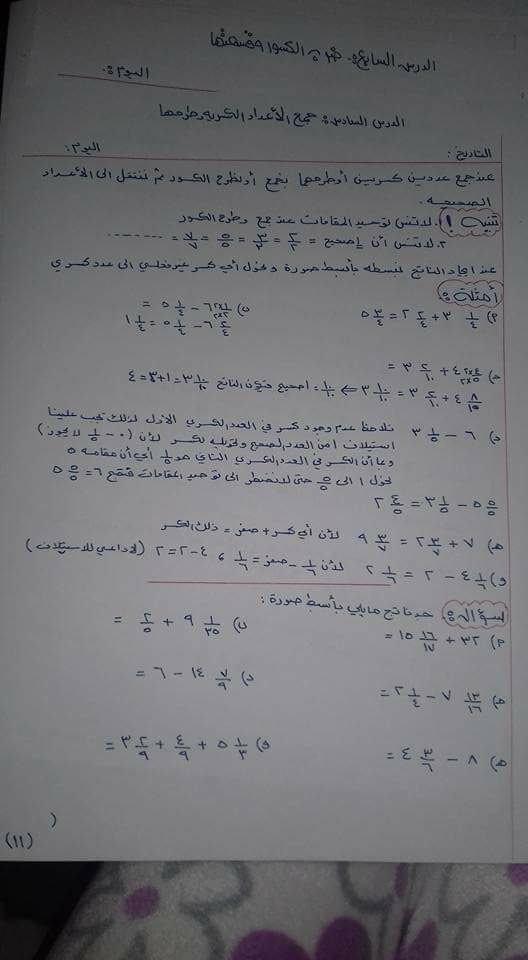 الدرس السابع: ضرب الكسور وقسمتها
اليوم:
الدرس السادس: جمع الأعداد الكسرية وطرحها
التاريخ: اليوم:
عند جمع عددين كسريين أو طرحهما نجمع أو نطرح الكسور ثم ننتقل الى الأعداد
الصحيحة.
تنبيه! ١. لا تنس توحيد المقامات عند جمع وطرح الكسور
٢. لا تنس أن ١ صحيح = ٢/٢ = ٣/٣ = ٥/٥ = ٧/٧ = ........
عند ايجاد الناتج نبسطه بأبسط صورة ونحول أي كسر غير فعلي الى عدد كسري
أمثلة:
٣ ١/٤ + ٢ ٢/٤ = ٥ ٣/٤
٦ ١×٢/٢×٢ − ٥ ١/٤ =
٦ ٢/٤ − ٥ ١/٤ = ١ ١/٤
٤ ٤×٢/٥×٢ + ٣ ٢/١٠ =
٤ ٨/١٠ + ٣ ٢/١٠ =
د) ٦ − ٣ ١/٥ نلاحظ عدم وجود كسر في العدد الكسري الأول لذلك يجب علينا
استيلاف ١ من العدد الصحيح وتحويله لكسر لأن (٠ − ١/٥ لا يجوز)
وبما أن الكسر في العدد الكسري الثاني هو ١/٥ أي أن مقامه ٥
نحول ١ الى ٥/٥ حتى لا نضطر الى توحيد المقامات فتصبح ٦ = ٥ ٥/٥
٥ ٥/٥ − ٣ ١/٥ = ٢ ٤/٥
هـ) ٧ + ٢ ٣/٧ = ٩ ٣/٧ لأن أي كسر + صفر = ذلك الكسر
و) ٤ ١/٦ − ٢ = ٢ ١/٦ لأن ١/٦ − صفر = ١/٦ ، ٤ − ٢ = ٢ (لا داعي للاستيلاف)
سؤال: جد ناتج ما يلي بأبسط صورة:
٣٢ + ١٥ ١٦/١٧ =
ب) ٩ ١/٢٥ + ٢/٥ =
١٣/١٦ ٧ − ٢ ١/٤ =
د) ١٤ ٧/٩ − ٦ =
هـ) ٨ − ٤ ٣/٦ =
و) ٥ ١/٣ + ٤/٩ + ٣ ٢/٩ =
(١١)